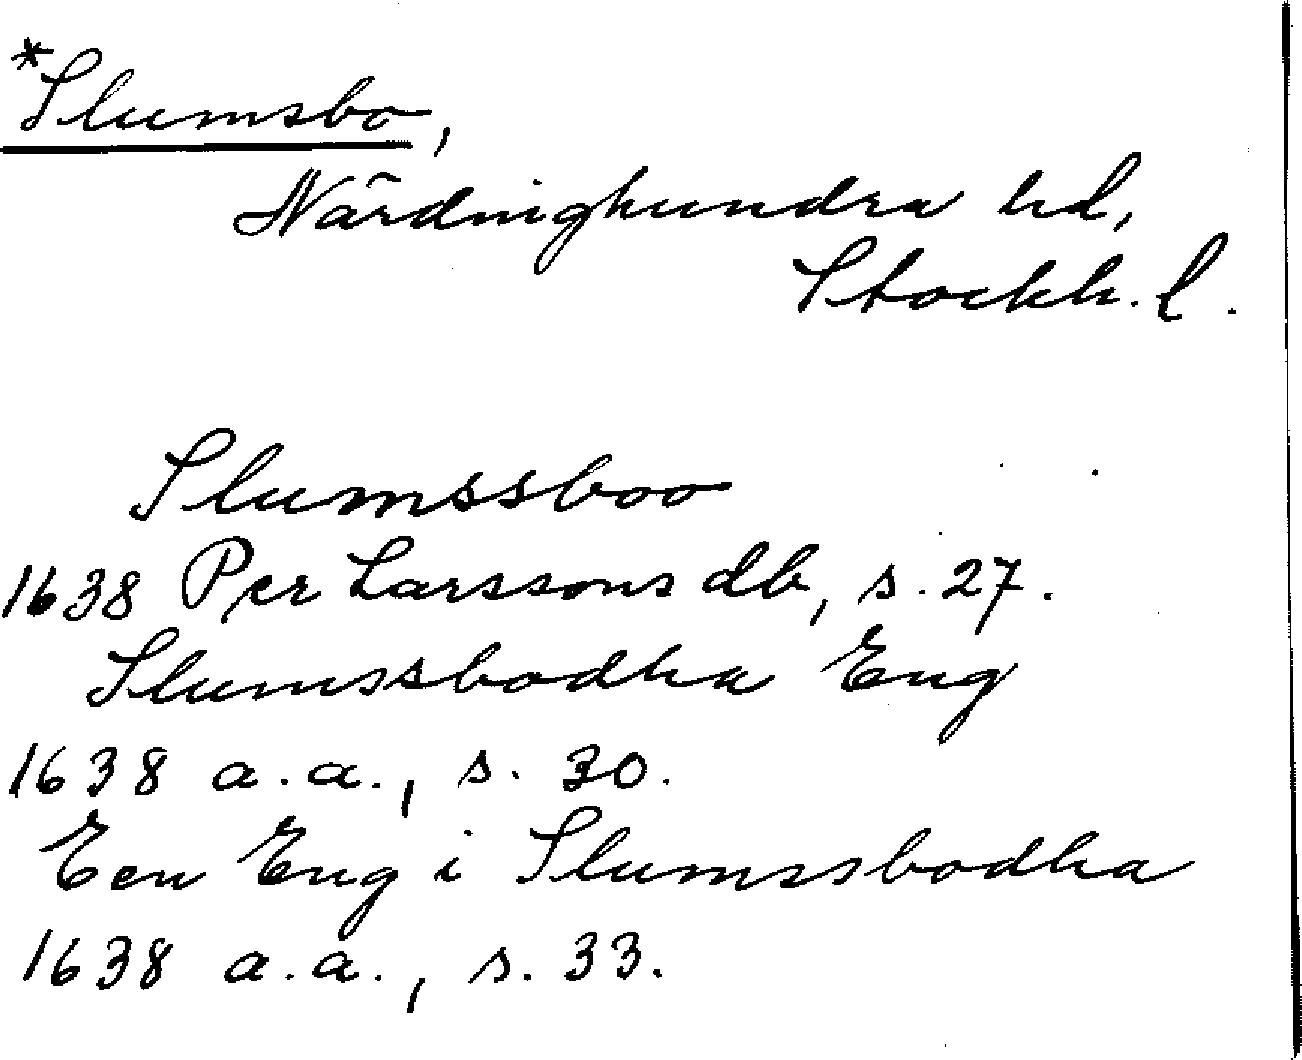 *Slumsbo,
Närdinghundra hd,
Stockh. l.
Slumssboo
1638 Per Larssons db, s. 27.
Slumssbodha Eng
1638 a.a., s. 30.
Een Eng i Slumssbodha
1638 a.a., s. 33.